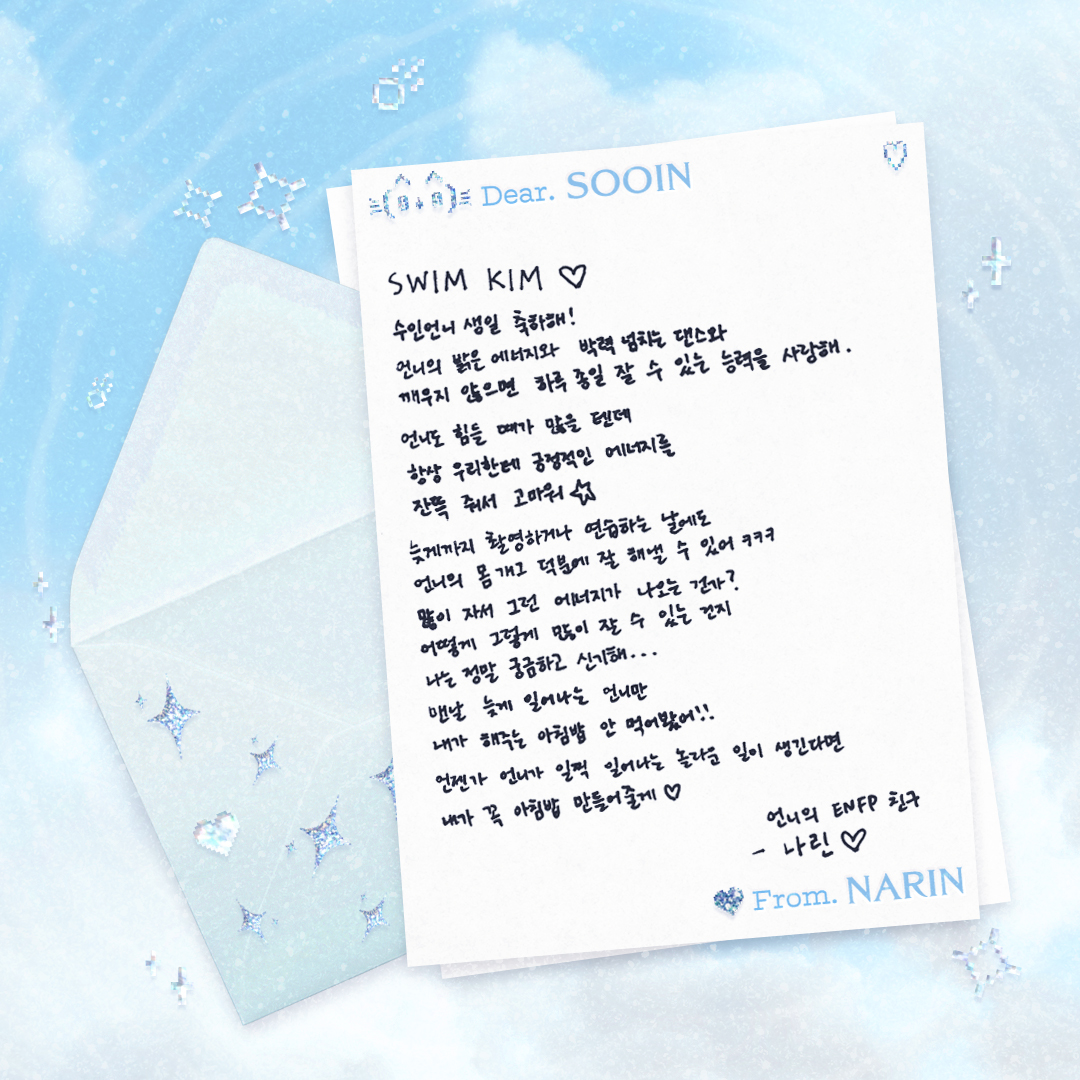 Dear. SOOIN
SWIM KIM ♡
수인언니 생일 축하해!
언니의 밝은 에너지와 박력 넘치는 댄스와
깨우지 않으면 하루 종일 잘 수 있는 능력을 사랑해.
언니도 힘들 때가 많을 텐데
항상 우리한테 긍정적인 에너지를
잔뜩 줘서 고마워 ☆
늦게까지 촬영하거나 연습하는 날에도
언니의 몸개그 덕분에 잘 해낼 수 있어 ㅋㅋㅋ
많이 자서 그런 에너지가 나오는 건가?
어떻게 그렇게 많이 잘 수 있는 건지
나는 정말 궁금하고 신기해...
맨날 늦게 일어나는 언니만
내가 해주는 아침밥 안 먹어봤어!!
언젠가 언니가 일찍 일어나는 놀라운 일이 생긴다면
내가 꼭 아침밥 만들어줄게 ♡
언니의 ENFP 친구
- 나린 ♡
From. NARIN